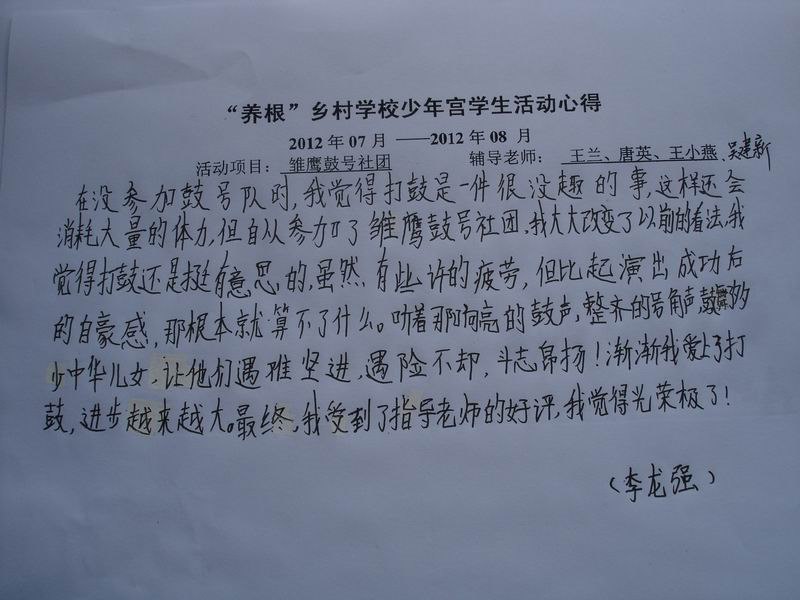 “养根”乡村学校少年宫学生活动心得
2012 年 07 月 ——2012 年 08 月
活动项目： 雏鹰鼓号社团 辅导老师： 王兰、唐英、王小燕、吴建新
在没参加鼓号队时,我觉得打鼓是一件很没趣的事,这样还会
消耗大量的体力,但自从参加了雏鹰鼓号社团,我大大改变了以前的看法,我
觉得打鼓还是挺有意思的,虽然有些许的疲劳,但比起演出成功后
的自豪感,那根本就算不了什么。听着那响亮的鼓声,整齐的号角声,鼓舞了多
少中华儿女,让他们遇难坚进,遇险不却,斗志昂扬!渐渐我爱上了打
鼓,进步越来越大。最终,我受到了指导老师的好评,我觉得光荣极了!
(李龙强)